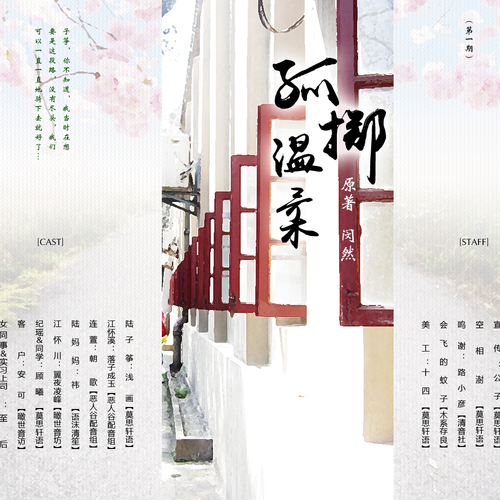 子筝，你不知道，我当时在想
要是这段路 没有尽头，我们
可以一直一直地骑下去就好了…
孤掷
温柔
原著 闵然
（第一期）
[CAST]
陆子筝：浅画【莫思轩语】
江怀溪：落子成玉【恶人谷配音组】
连萱：朝歌【恶人谷配音组】
陆妈妈：祎【语沫清笙】
江怀川：翼夜凌峰【瞰世音坊】
纪瑶&同学：顾曦【莫思轩语】
客户：安可【瞰世音访】
女同事&实习上司：至后
[STAFF]
宣传：公子
空相谢【莫思轩语】
鸣谢：路小彦【清音社】
会飞的蚊子【木系存良】
美工：十四【莫思轩语】